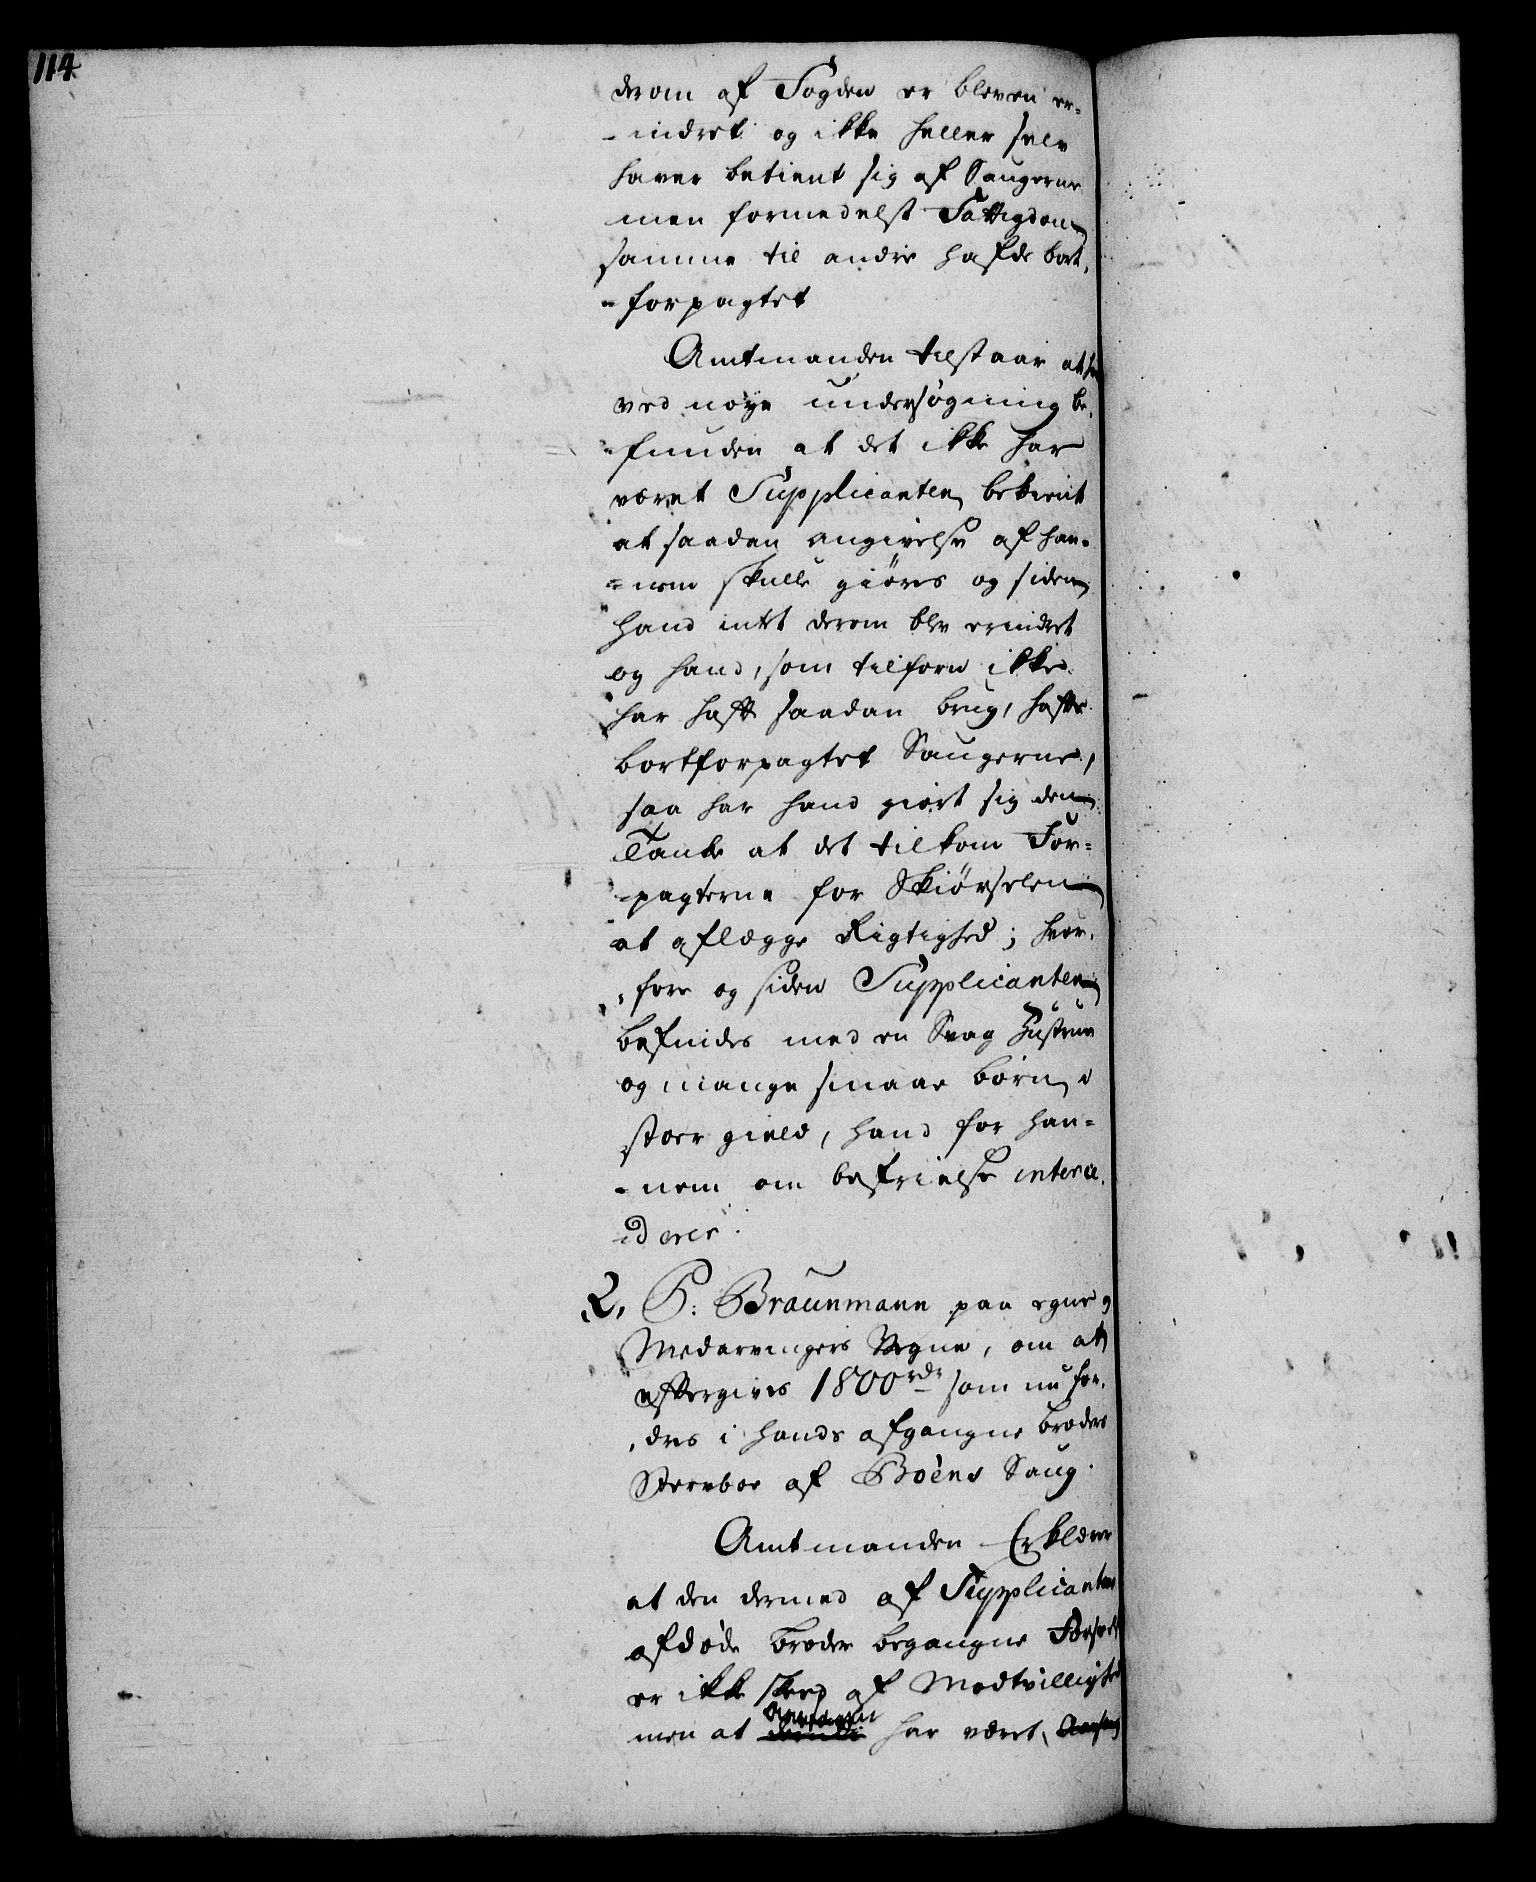 114
derom af Fogden er bleven er=
-indret og ikke heller selv
haver betient sig af Saugerne
men formedelst Fattigdom
samme til andre hafde bort,
-forpagtet
Amtmanden tilstaar at
ved nøye undersøgning be,
-funden at det ikke har
været Supplicanten bekient
at saadan angivelse af han=
=nem skulle giøres og siden
hand intet derom blev erindret
og hand, som tilforn ikke
har haft saadan brug, hafde
bortforpagtet Saugerne,
saa har hand giort sig den
Tanke at det tilkom For=
pagterne for Skiørselen
at aflægge Rigtighed; hvor,
,fore og siden Supplicanten
befindes med en Svag Hustrue
og mange smaae børn i
stoer gield, hand for han=
-nem om befrielse interce,
derer.
2, P: Braunmann paa egne
Medarvingers Vegne, om at
eftergives 1800 rdr som nu for,
,dres i hands afgangne broders
Stervboe af Boëns Saug.
Amtmanden Erklærer
at den dermed af Supplicantens
afdøde broder begangne Forseelse
er ikke skeed af Modtvillighed
men at har været,